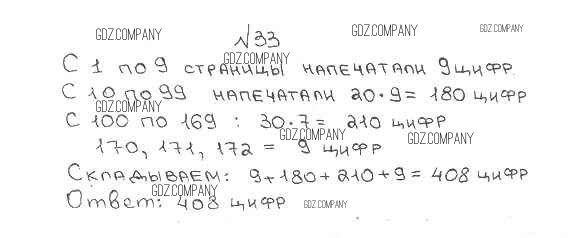 GDZ.COMPANY №33 GDZ.COMPANY GDZ.COMPANY
GDZ.COMPANY
С 1 по 9 страницы напечатали 9 цифр.
С 10 по 99 напечатали 20·9= 180 цифр
GDZ.COMPANY
С 100 по 169 : 30·7= 210 цифр
GDZ.COMPANY GDZ.COMPANY
170, 171, 172 = 9 цифр
Складываем: 9+180+210+9= 408 цифр
GDZ.COMPANY
Ответ: 408 цифр GDZ.COMPANY